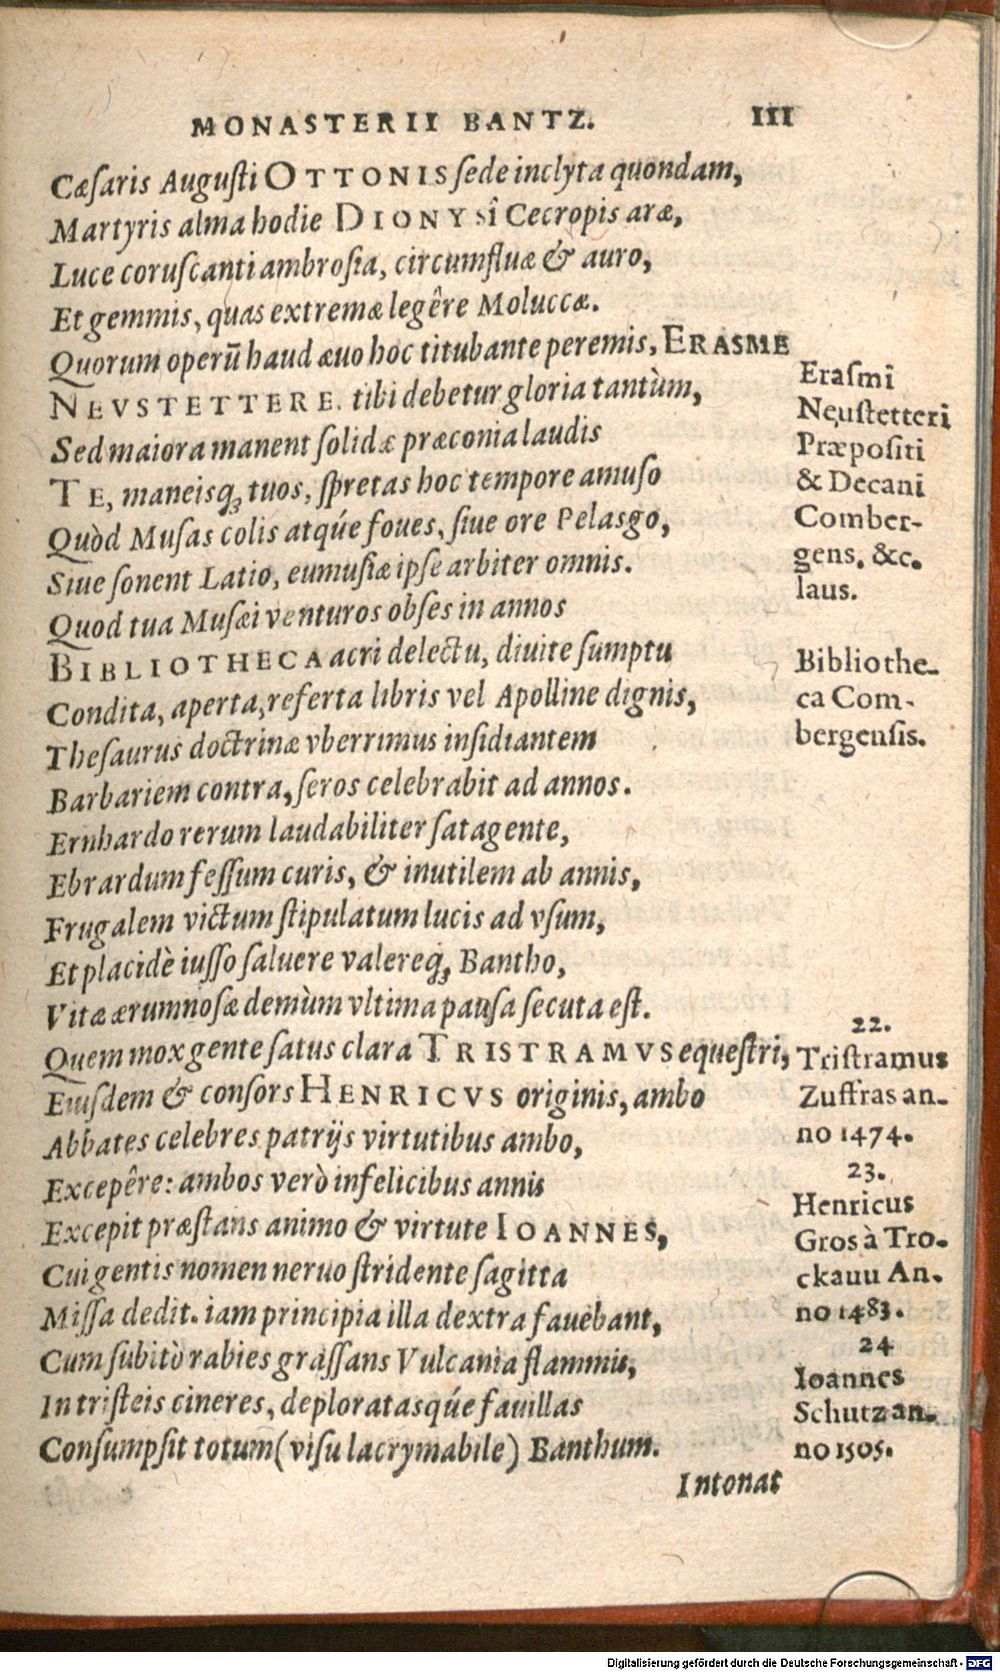 MONASTERII BANTZ. III
Cæſaris Auguſti OTTONIS ſede inclyta quondam,
Martyris alma hodie DIONYSî Cecropis aræ,
Luce coruſcanti ambroſia, circumfluæ & auro,
Et gemmis, quas extremæ legêre Moluccæ.
Quorum operū haud æuo hoc titubante peremis, ERASME
NEVSTETTERE, tibi debetur gloria tantùm,
Sed maiora manent ſolidæ præconia laudis
TE, maneisq́ꝫ tuos, ſpretas hoc tempore amuſo
Quòd Muſas colis atqúe foues, ſiue ore Pelasgo,
Siue ſonent Latio, eumuſiæ ipſe arbiter omnis.
Quod tua Muſæi venturos obſes in annos
BIBLIOTHECA acri delectu, diuite ſumptu
Condita, aperta, referta libris vel Apolline dignis,
Theſaurus doctrinæ vberrimus inſidiantem
Barbariem contra, ſeros celebrabit ad annos.
Ernhardo rerum laudabiliter ſatagente,
Ebrardum feſſum curis, & inutilem ab annis,
Frugalem victum ſtipulatum lucis ad vſum,
Et placidè iuſſo ſaluere valereq́ꝫ Bantho,
Vitæ ærumnoſæ demùm vltima pauſa secuta eſt.
Quem mox gente ſatus clara TRISTRAMVS equeſtri,
Eiuſdem & conſors HENRICVS originis, ambo
Abbates celebres patrijs virtutibus ambo,
Excepêre: ambos verò infelicibus annis
Excepit præſtans animo & virtute IOANNES,
Cui gentis nomen neruo ſtridente ſagitta
Miſſa dedit. iam principia illa dextra fauebant,
Cum ſubitò rabies graſſans Vulcania flammis,
In triſteis cineres, deploratasqúe fauillas
Conſumpſit totum (viſu lacrymabile) Banthum.
Intonat
Eraſmi
Neuſtetteri
Præpoſiti
& Decani
Comber-
gens. &c.
laus.
Bibliothe-
ca Com-
bergenſis.
22.
Triſtramus
Zuffras an-
no 1474.
23.
Henricus
Gros à Tro-
ckauu An-
no 1483.
24
Ioannes
Schutz an-
no 1505.
Digitalisierung gefördert durch die Deutsche Forschungsgemeinschaft - DFG